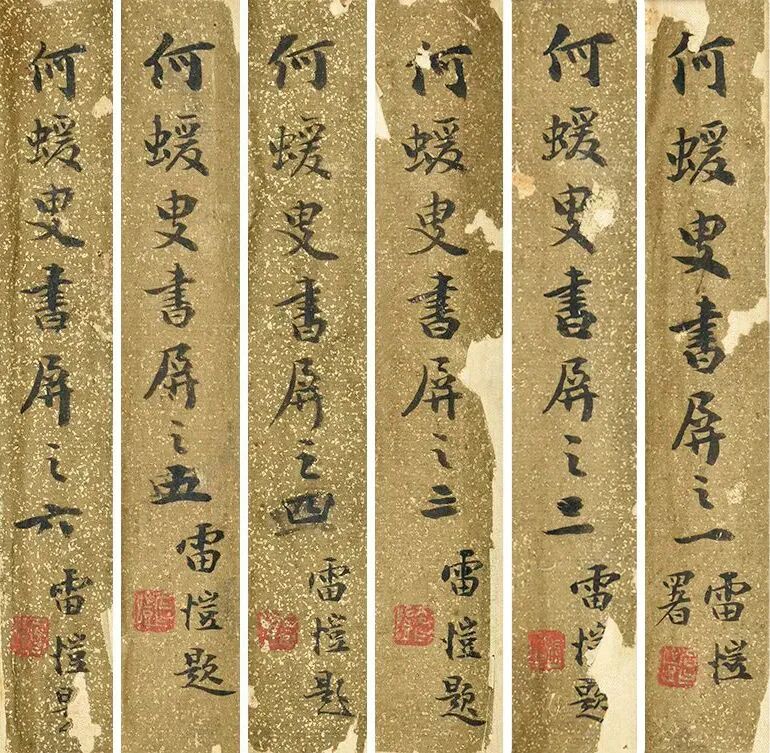 何蝯叟書屏之一
雷愷署
何蝯叟書屏之二
雷愷題
何蝯叟書屏之三
雷愷題
何蝯叟書屏之四
雷愷題
何蝯叟書屏之五
雷愷題
何蝯叟書屏之六
雷愷